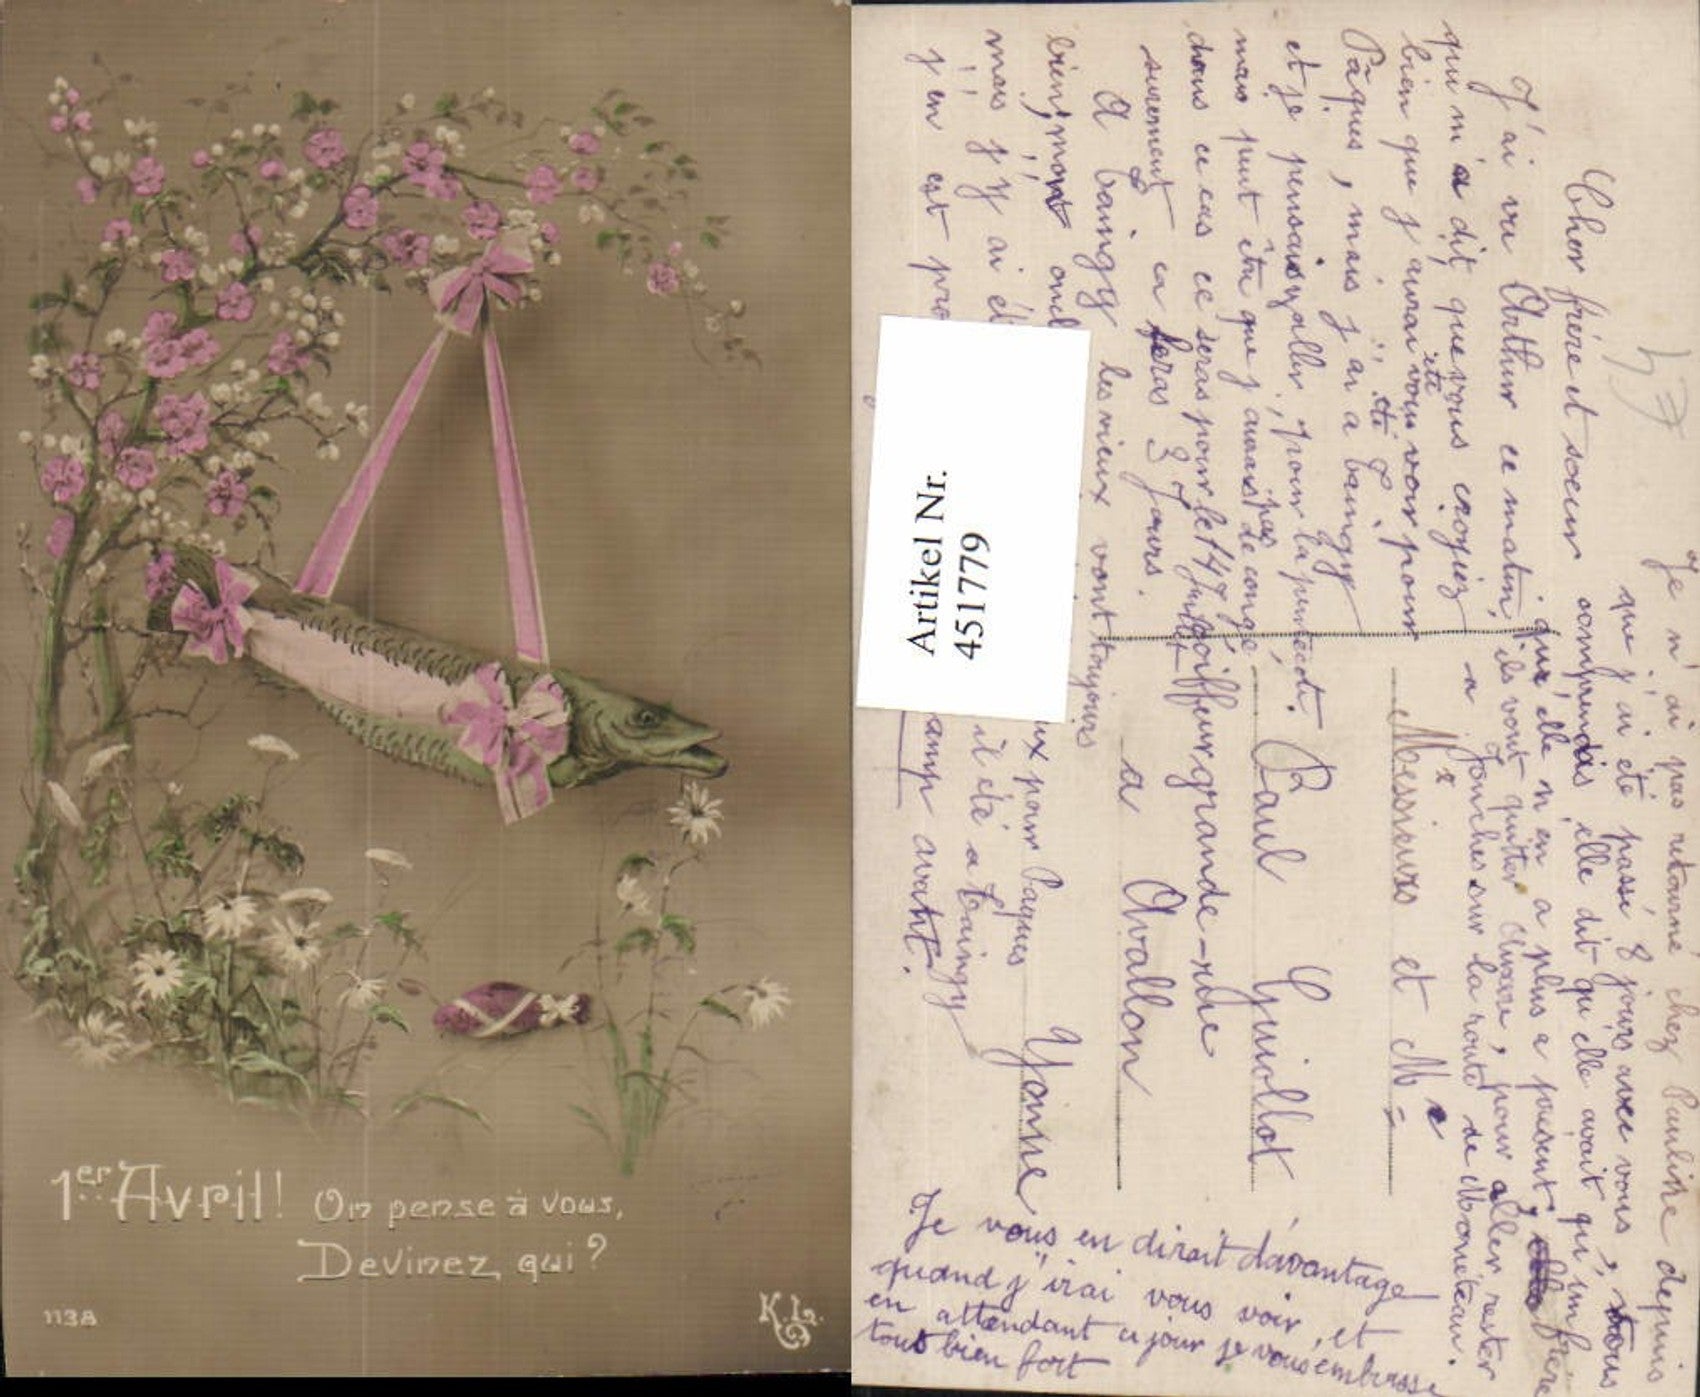 1er Avril! On pense à vous,
Devinez qui?
1138
K.L.
Cher frère et soeur
J'ai vu Arthur ce matin,
qui m'a dit que vous croyiez
bien que j'aurai été vous voir pour
Pâques, mais j'ai été à baingy
et je pensais y aller, pour la pentecôte.
mais peut être que j'aurais pas de congé,
dans ce cas ce seras pour le 14 Juillet
surement ca feras 3 Jours.
A baingy les vieux vont toujours
bien, mont
mais j'y ai il été a baingy
j'en est avant.
ux pour Paques
Yonne
Messieurs et Me
Paul Guiollot
coiffeur grande-rue
a Avallon
Je n'ai pas retourné chez Pauline depuis
que j'ai été passé 8 jours avec vous, vous
comprendais elle dit qu'elle avait qu'un frère
qui elle n'en a plus a present,
ils vont quitter Auxerre, pour aller rester
a Jonches sur la route de Monéteau.
Je vous en dirait davantage
quand j'irai vous voir, et
en attendant ce jour je vous embrasse
tous bien fort
Artikel Nr.
4517779